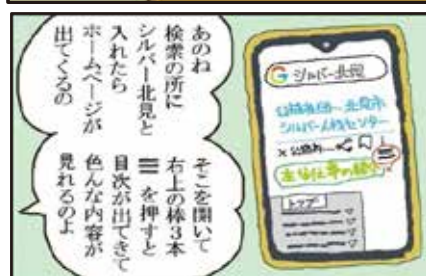 あのね
検索の所に
シルバー北見と
入れたら
ホームページが
出てくるの
そこを開いて
右上の棒3本
≡を押すと
目次が出てきて
色んな内容が
見れるのよ
G シルバー北見
公益社団 北見市
シルバー人材センター
トップ